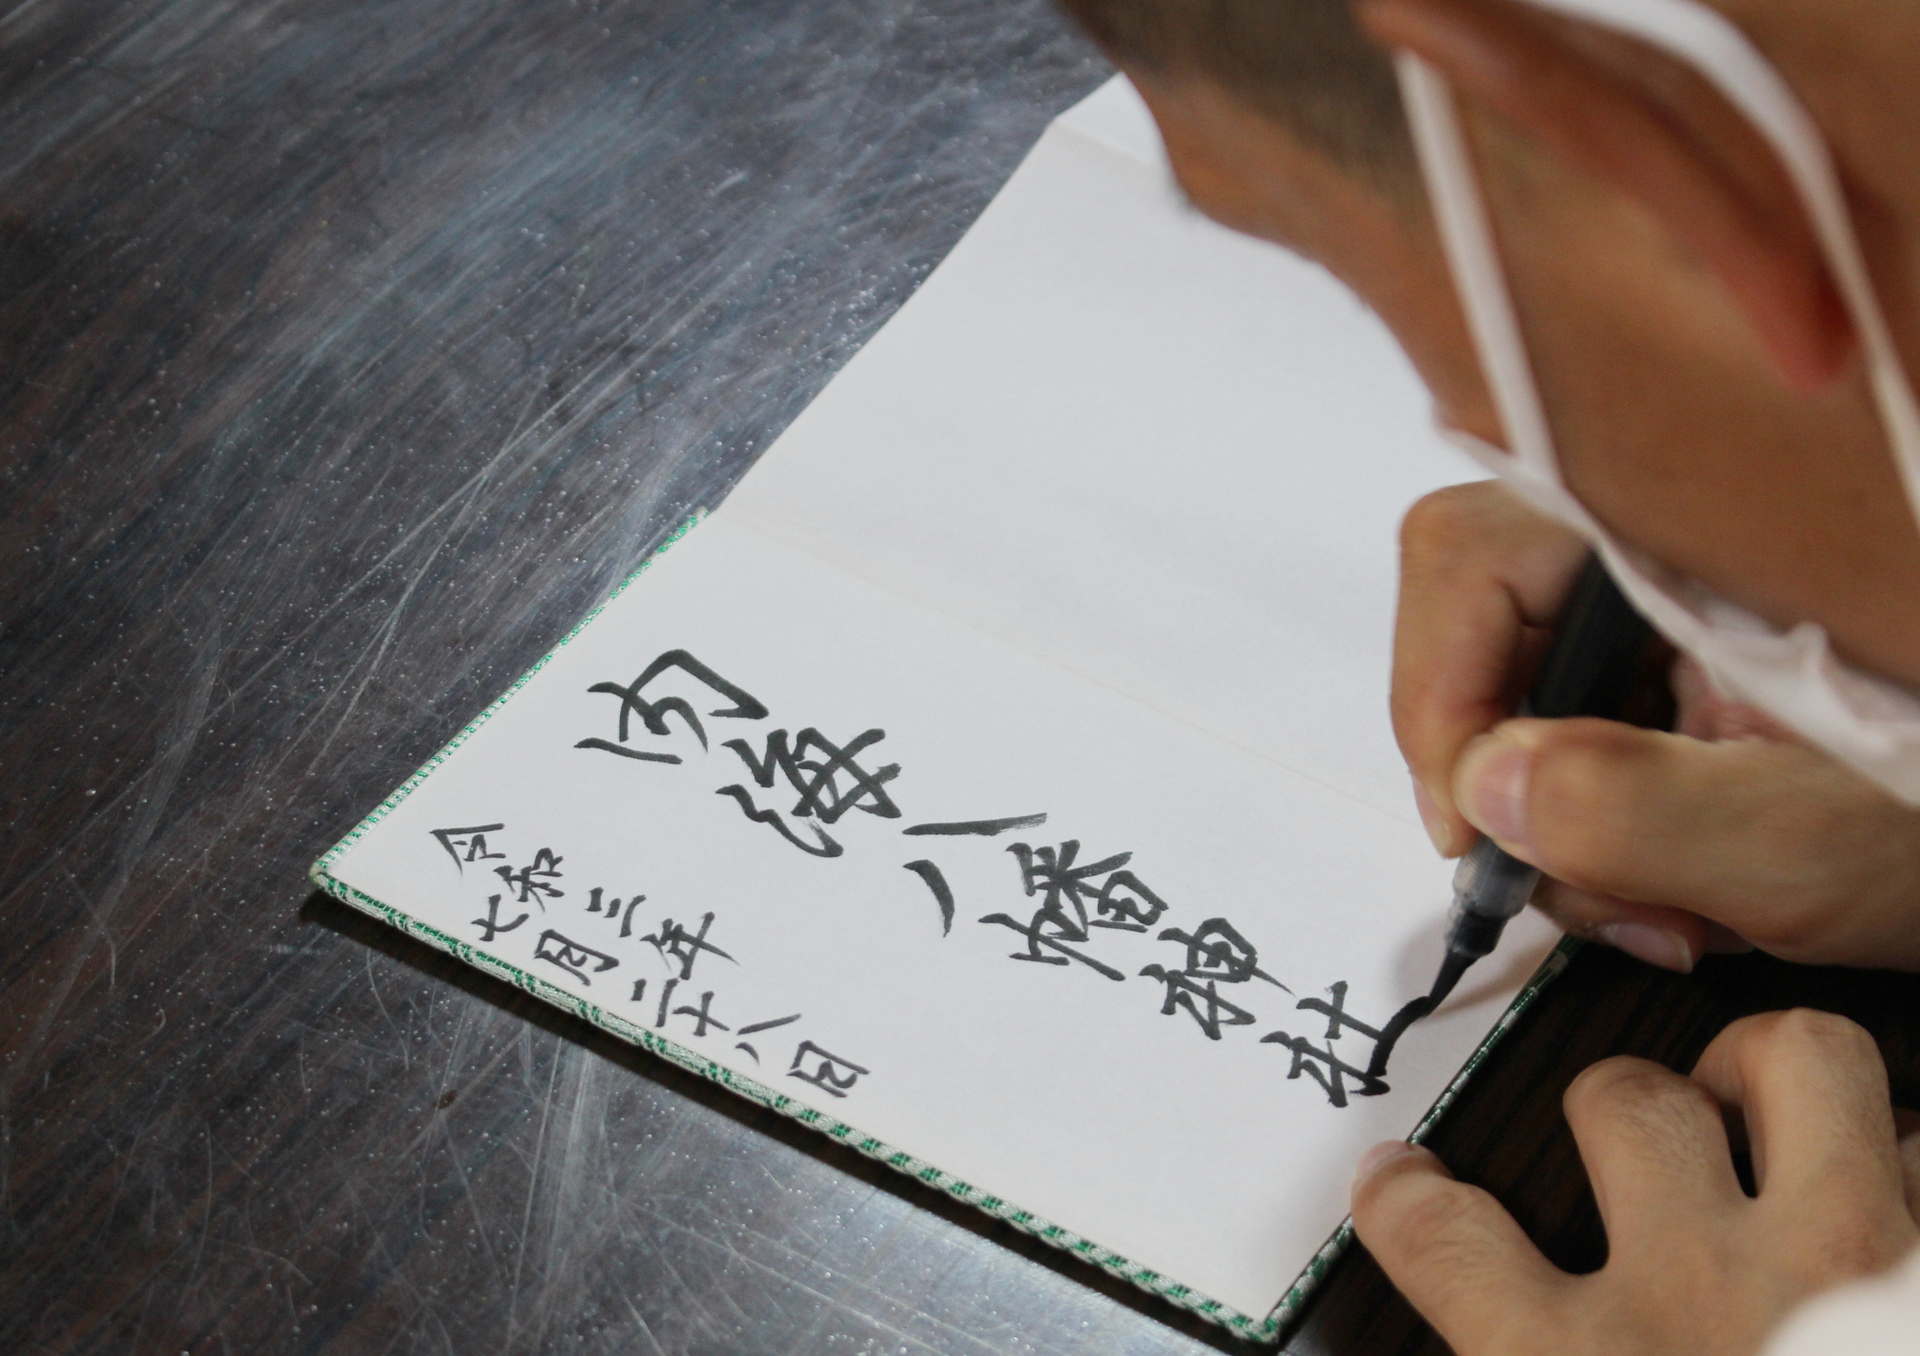 内海八幡神社
令和三年
七月二十八日